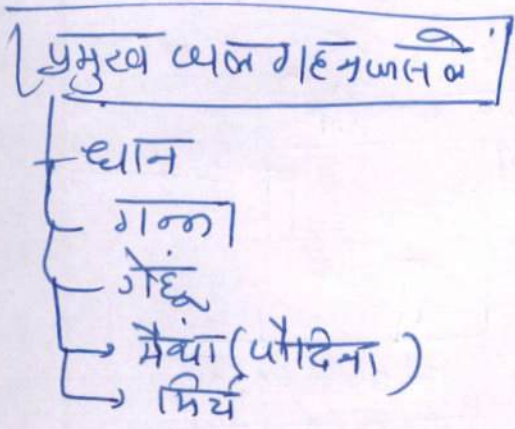 प्रमुख जल गहन फसलें
धान
गन्ना
गेहूं
मैंथा (पौदिना)
मिर्च